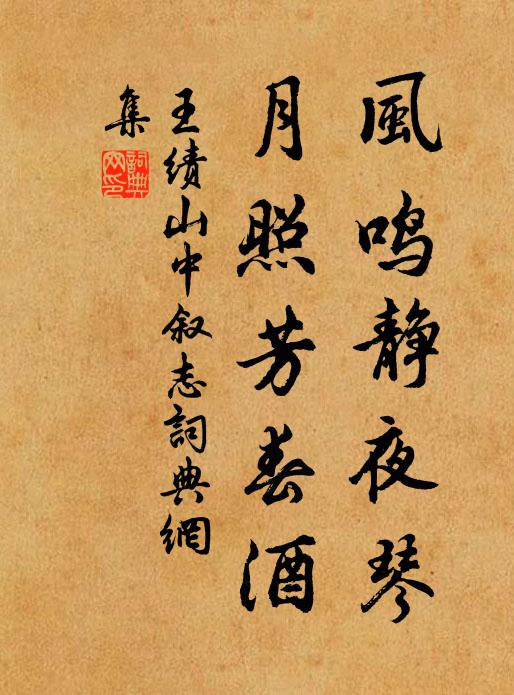 風鸣静夜琴
月照芳春酒
王绩山中叙志詞典網
集
詞典
网印